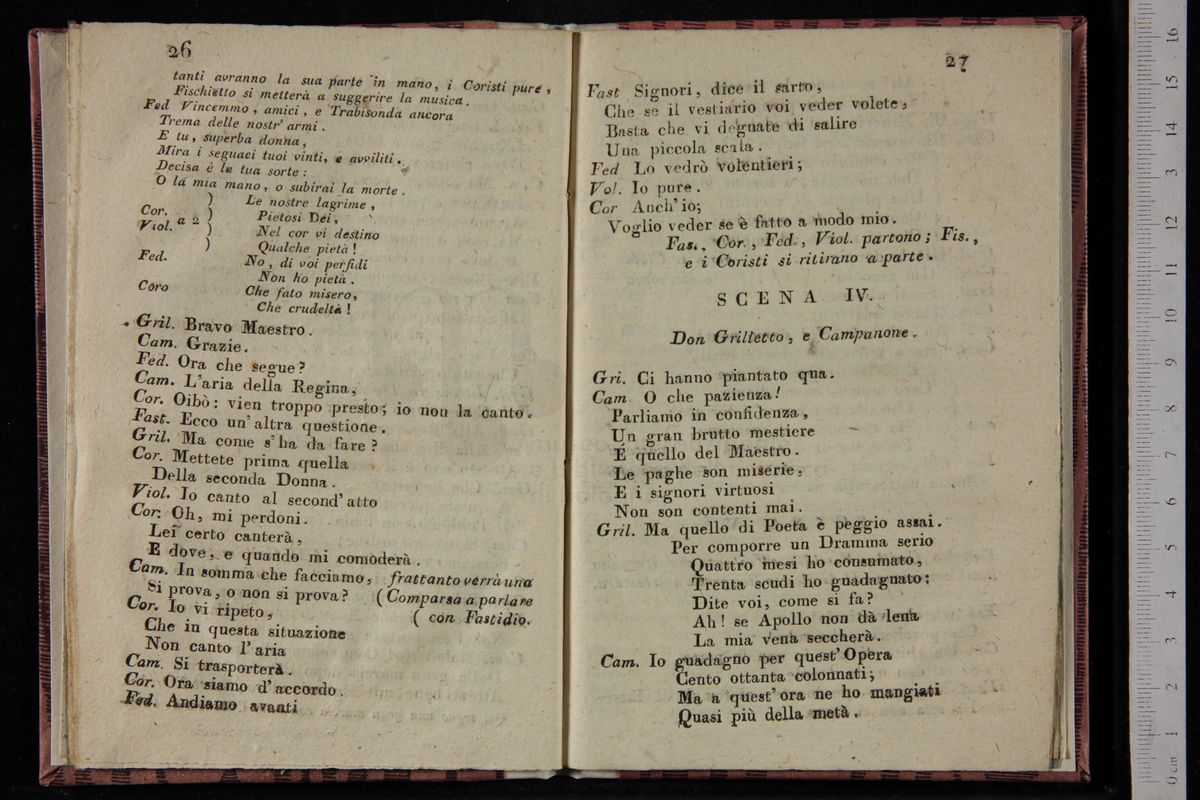 26
tanti avranno la sua parte in mano, i Coristi pure,
Fischietto si metterà a suggerire la musica.
Fed Vincemmo, amici, e Trabisonda ancora
Trema delle nostr' armi.
E tu, superba donna,
Mira i seguaci tuoi vinti, e avviliti.
Decisa è la tua sorte:
O la mia mano, o subirai la morte.
Cor. Viol. a 2 ) Le nostre lagrime,
) Pietosi Dei,
) Nel cor vi destino
) Qualche pietà!
Fed. No, di voi perfidi
Non ho pietà.
Coro Che fato misero,
Che crudeltà!
Gril. Bravo Maestro.
Cam. Grazie.
Fed. Ora che segue?
Cam. L'aria della Regina,
Cor. Oibò: vien troppo presto; io non la canto.
Fast. Ecco un' altra questione.
Gril. Ma come s' ha da fare?
Cor. Mettete prima quella
Della seconda Donna.
Viol. Io canto al second' atto
Cor. Oh, mi perdoni.
Lei certo canterà,
E dove, e quando mi comoderà.
Cam. In somma che facciamo, frattanto verrà una
Si prova, o non si prova? (Comparsa a parlare
Cor. Io vi ripeto, ( con Fastidio.
Che in questa situazione
Non canto l' aria
Cam. Si trasporterà.
Cor. Ora siamo d' accordo.
Fed. Andiamo avanti
27
Fast Signori, dice il sarto,
Che se il vestiario voi veder volete,
Basta che vi degnate di salire
Una piccola scala.
Fed Lo vedrò volentieri;
Vol. Io pure.
Cor Anch' io;
Voglio veder se è fatto a modo mio.
Fas., Cor., Fed., Viol. partono; Fis.,
e i Coristi si ritirano a parte.
SCENA IV.
Don Grilletto, e Campanone.
Gri. Ci hanno piantato qua.
Cam O che pazienza!
Parliamo in confidenza,
Un gran brutto mestiere
É quello del Maestro.
Le paghe son miserie,
E i signori virtuosi
Non son contenti mai.
Gril. Ma quello di Poeta è peggio assai.
Per comporre un Dramma serio
Quattro mesi ho consumato,
Trenta scudi ho guadagnato:
Dite voi, come si fa?
Ah! se Apollo non dà lena
La mia vena seccherà.
Cam. Io guadagno per quest' Opera
Cento ottanta colonnati;
Ma a quest' ora ne ho mangiati
Quasi più della metà.
0 cm 1 2 3 4 5 6 7 8 9 10 11 12 13 14 15 16